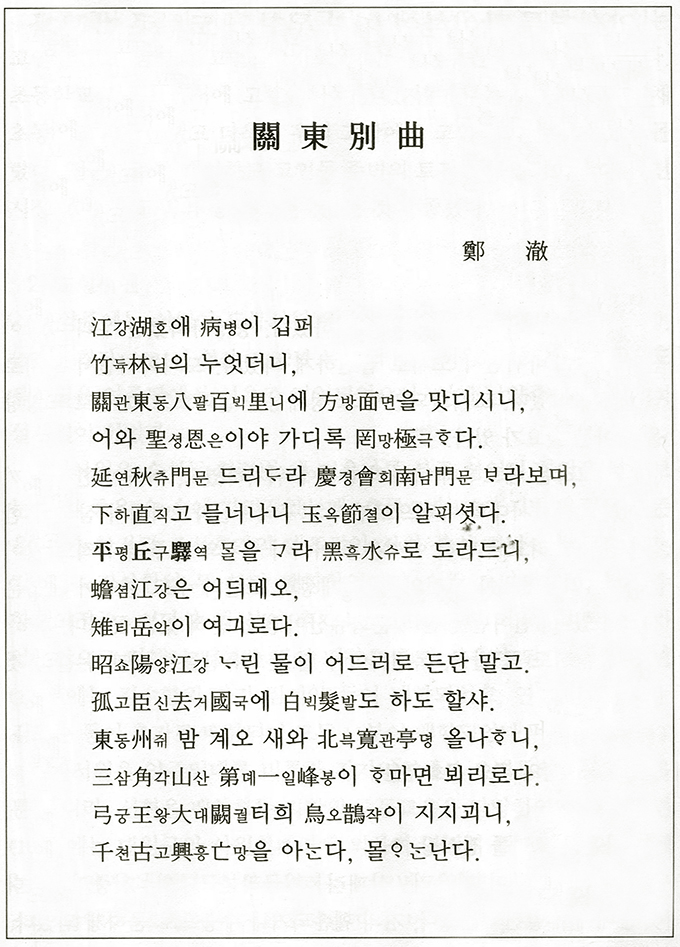 關東別曲
鄭 澈
江강湖호애 病병이 깁퍼
竹듁林님의 누엇더니,
關관東동八팔百빅里니에 方방面면을 맛디시니,
어와 聖셩恩은이야 가디록 罔망極극ᄒᆞ다.
延연秋츄門문 드리ᄃᆞ라 慶경會회南남門문 ᄇᆞ라보며,
下하直직고 믈너나니 玉옥節졀이 알ᄑᆡ셧다.
平평丘구驛역 ᄆᆞᆯ을 ᄀᆞ라 黑흑水슈로 도라드니,
蟾셤江강은 어듸메오,
雉티岳악이 여긔로다.
昭쇼陽양江강 ᄂᆞ린 물이 어드러로 든단 말고.
孤고臣신去거國국에 白ᄇᆡᆨ髮발도 하도 할샤.
東동州쥐 밤 계오 새와 北븍寬관亭뎡 올나ᄒᆞ니,
三삼角각山산 第뎨一일峰봉이 ᄒᆞ마면 뵈리로다.
弓궁王왕大대闕궐터희 烏오鵲쟉이 지지괴니,
千쳔古고興흥亡망을 아ᄂᆞᆫ다, 몰ᄋᆞᄂᆞᆫ다.